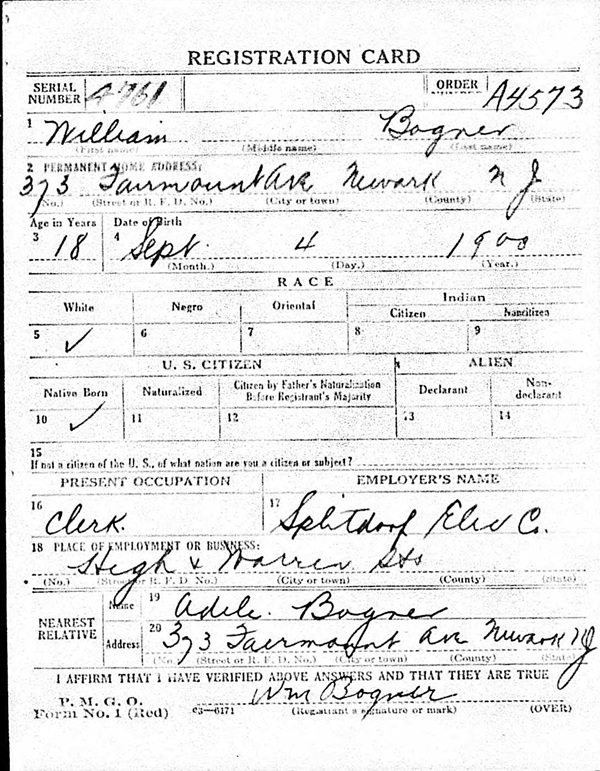 REGISTRATION CARD
SERIAL NUMBER 4761 ORDER A4573
1 William Bogner
(First name) (Middle name) (Last name)
2 PERMANENT HOME ADDRESS:
373 Fairmount Ave Newark N J
(No.) (Street or R. F. D. No.) (City or town) (County) (State)
Age in Years Date of Birth
3 18 4 Sept. 4 1900
(Month.) (Day.) (Year.)
RACE
White Negro Oriental Indian
Citizen Noncitizen
5 ✓ 6 7 8 9
U. S. CITIZEN ALIEN
Native Born Naturalized Citizen by Father's Naturalization Before Registrant's Majority Declarant Non-declarant
10 ✓ 11 12 13 14
15
If not a citizen of the U. S., of what nation are you a citizen or subject?
PRESENT OCCUPATION EMPLOYER'S NAME
16 Clerk. 17 Splitdorf Elec Co.
18 PLACE OF EMPLOYMENT OR BUSINESS:
High & Warren Sts
(No.) (Street or R. F. D. No.) (City or town) (County) (State)
NEAREST RELATIVE Name 19 Adele. Bogner
Address 20 373 Fairmount Ave Newark NJ
(No.) (Street or R. F. D. No.) (City or town) (County) (State)
I AFFIRM THAT I HAVE VERIFIED ABOVE ANSWERS AND THAT THEY ARE TRUE
P. M. G. O. Wm Bogner
Form No. 1 (Red) c3—6171 (Registrant's signature or mark) (OVER)